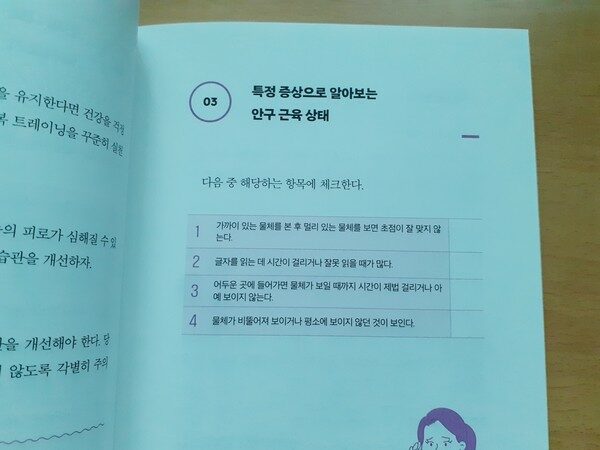 을 유지한다면 건강을 걱정
복 트레이닝을 꾸준히 실천
의 피로가 심해질 수 있
습관을 개선하자.
관을 개선해야 한다. 당
않도록 각별히 주의
03
특정 증상으로 알아보는
안구 근육 상태
다음 중 해당하는 항목에 체크한다.
1 가까이 있는 물체를 본 후 멀리 있는 물체를 보면 초점이 잘 맞지 않
는다.
2 글자를 읽는 데 시간이 걸리거나 잘못 읽을 때가 많다.
3 어두운 곳에 들어가면 물체가 보일 때까지 시간이 제법 걸리거나 아
예 보이지 않는다.
4 물체가 비뚤어져 보이거나 평소에 보이지 않던 것이 보인다.